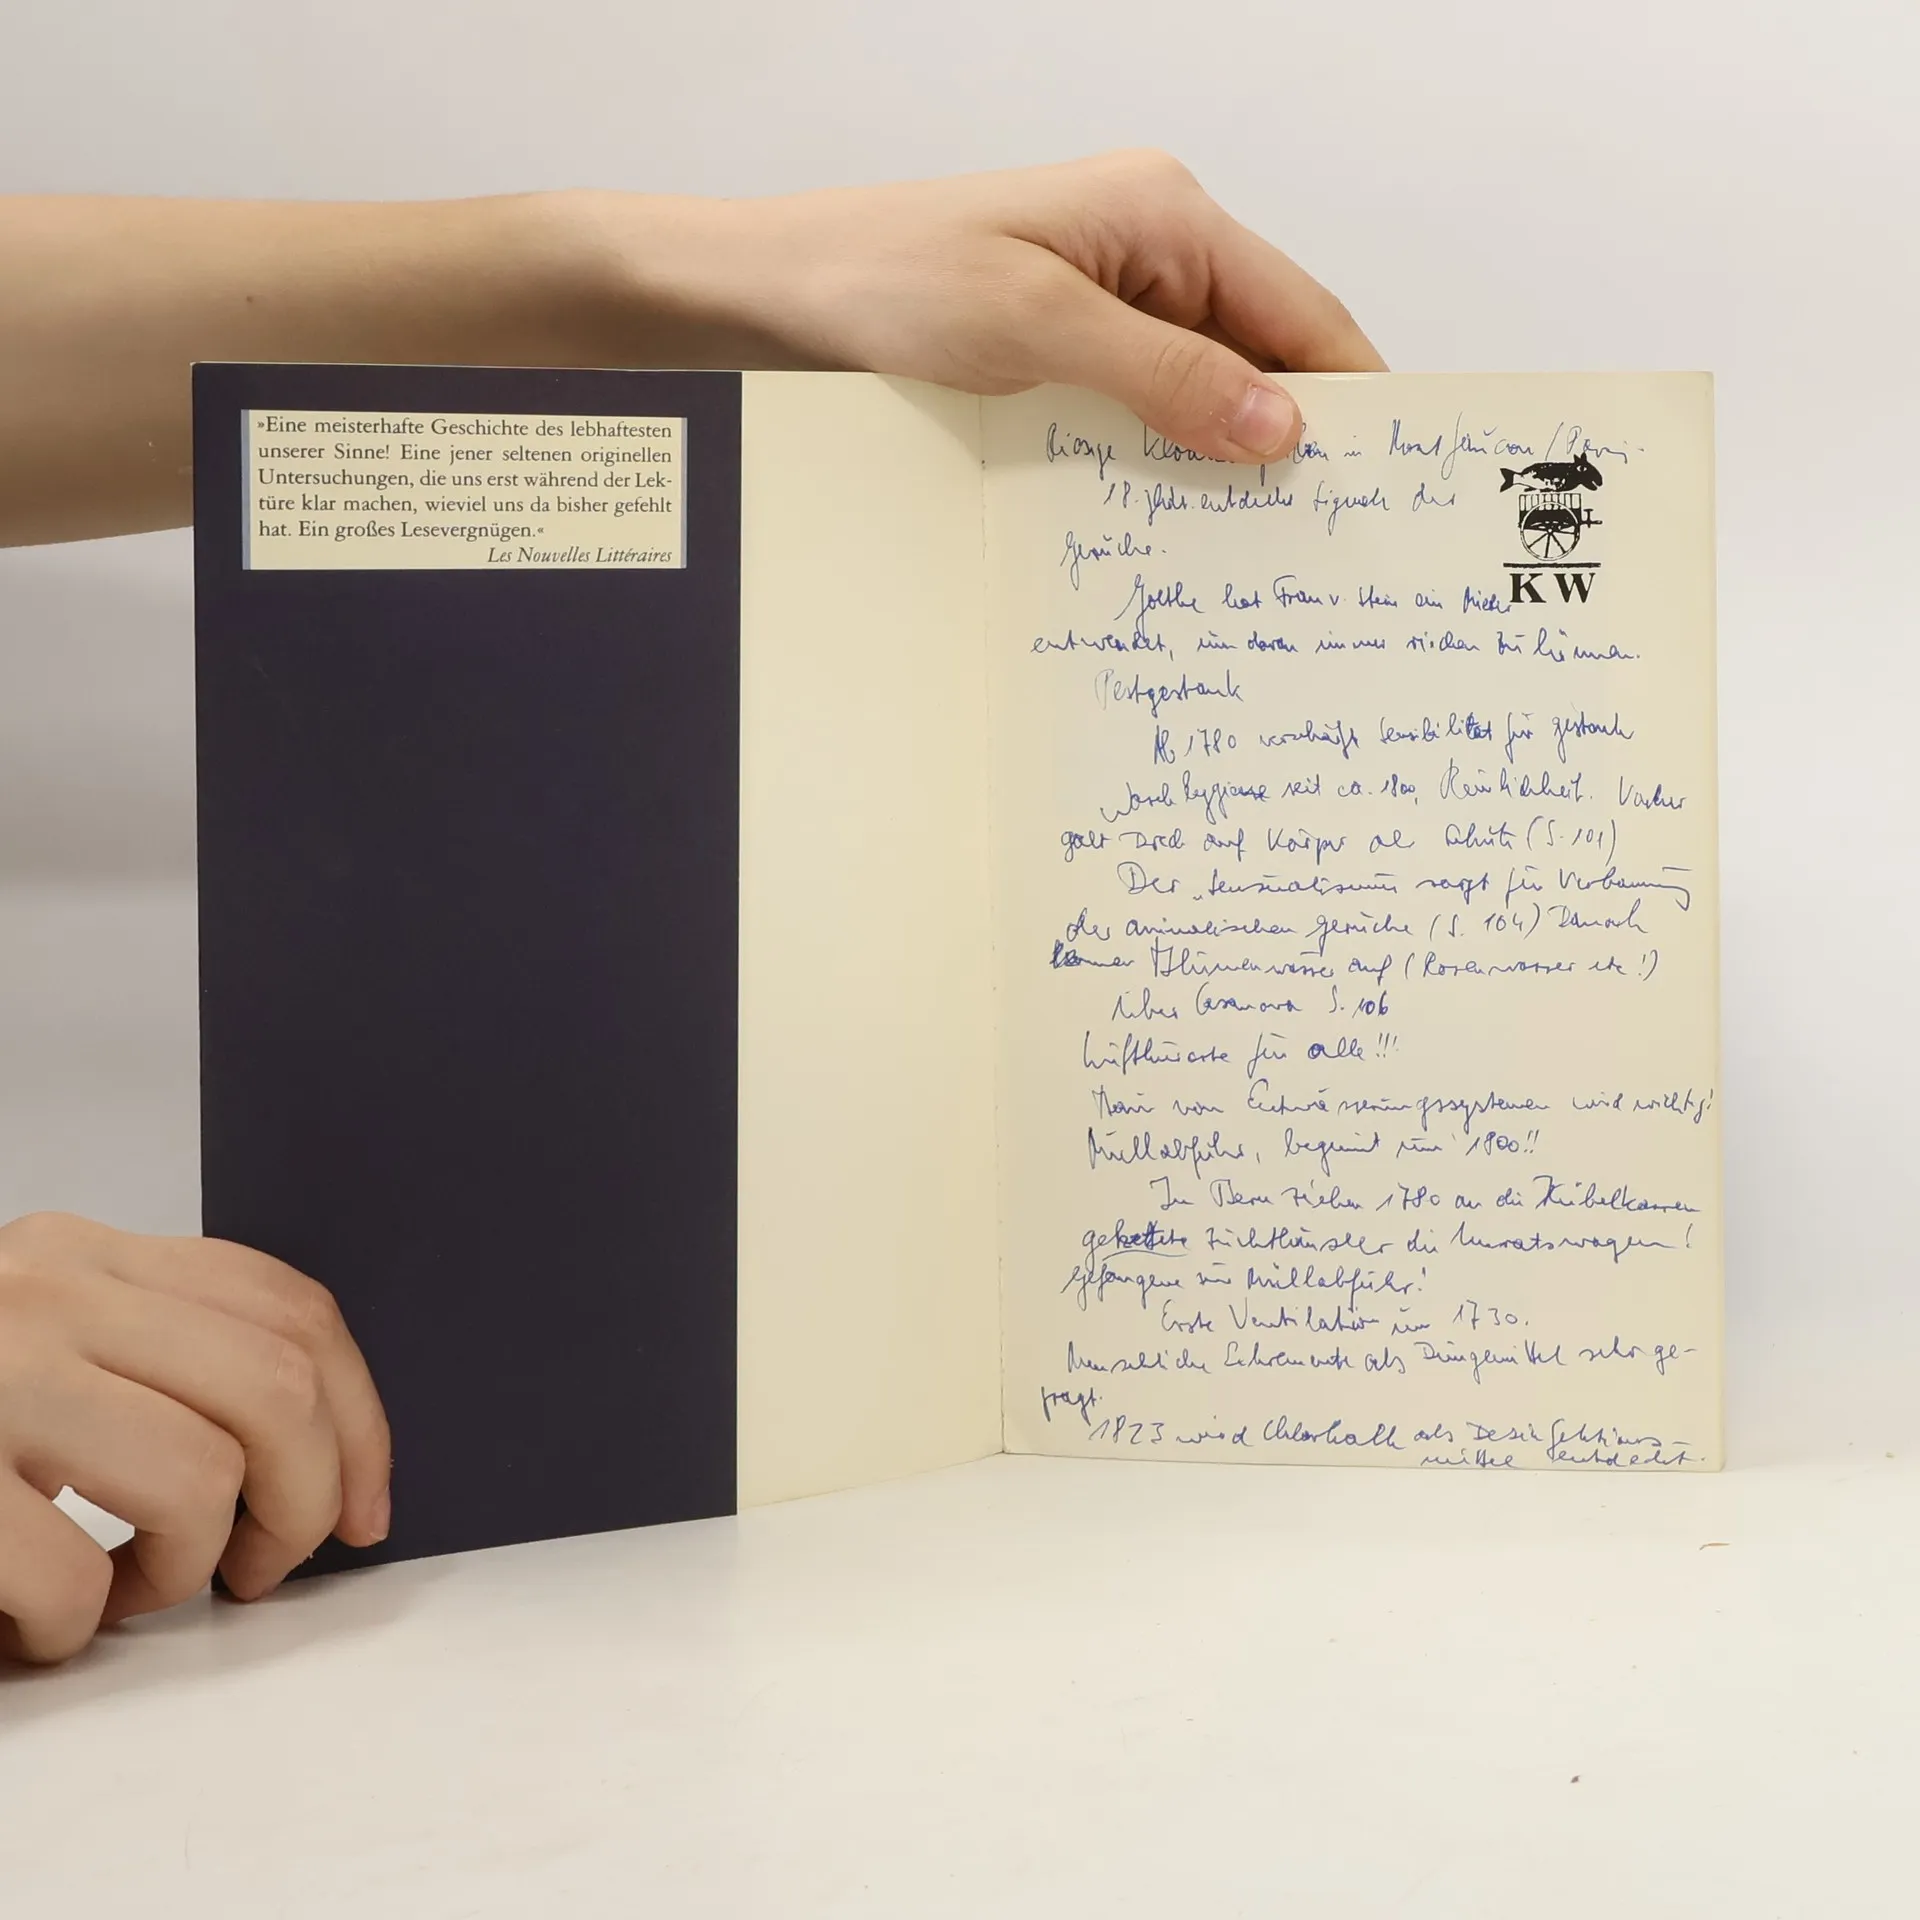 »Eine meisterhafte Geschichte des lebhaftesten
unserer Sinne! Eine jener seltenen originellen
Untersuchungen, die uns erst während der Lek-
türe klar machen, wieviel uns da bisher gefehlt
hat. Ein großes Lesevergnügen.«
Les Nouvelles Littéraires
Riesige in Montfaucon / Paris.
18. Jhdt. entdeckt Signale der
Gerüche.
KW
Goethe hat Frau v. Stein ein Mieder
entwendet, um daran immer riechen zu können.
Pestgestank
Ab 1780 verschärft Sensibilität für Gestank
Waschhygiene seit ca. 1800, Reinlichkeit. Vorher
galt Dreck auf Körper als Schutz (S. 101)
Der „Sensualismus sorgt für Verbannung
der animalischen Gerüche (S. 104) Danach
kommen Blumenwasser auf (Rosenwasser etc!)
Über Casanova S. 106
Luftkurorte für alle!!!
Bau von Entwässerungssystemen wird wichtig!
Müllabfuhr, beginnt um 1800!!
In Bern ziehen 1780 an die Kübelkarren
gekettete Zuchthäusler die Unratswagen!
Gefangene zur Müllabfuhr!
Erste Ventilation um 1730.
Menschliche Exkremente als Düngemittel sehr ge-
fragt.
1823 wird Chlorkalk als Desinfektions-
mittel entdeckt.